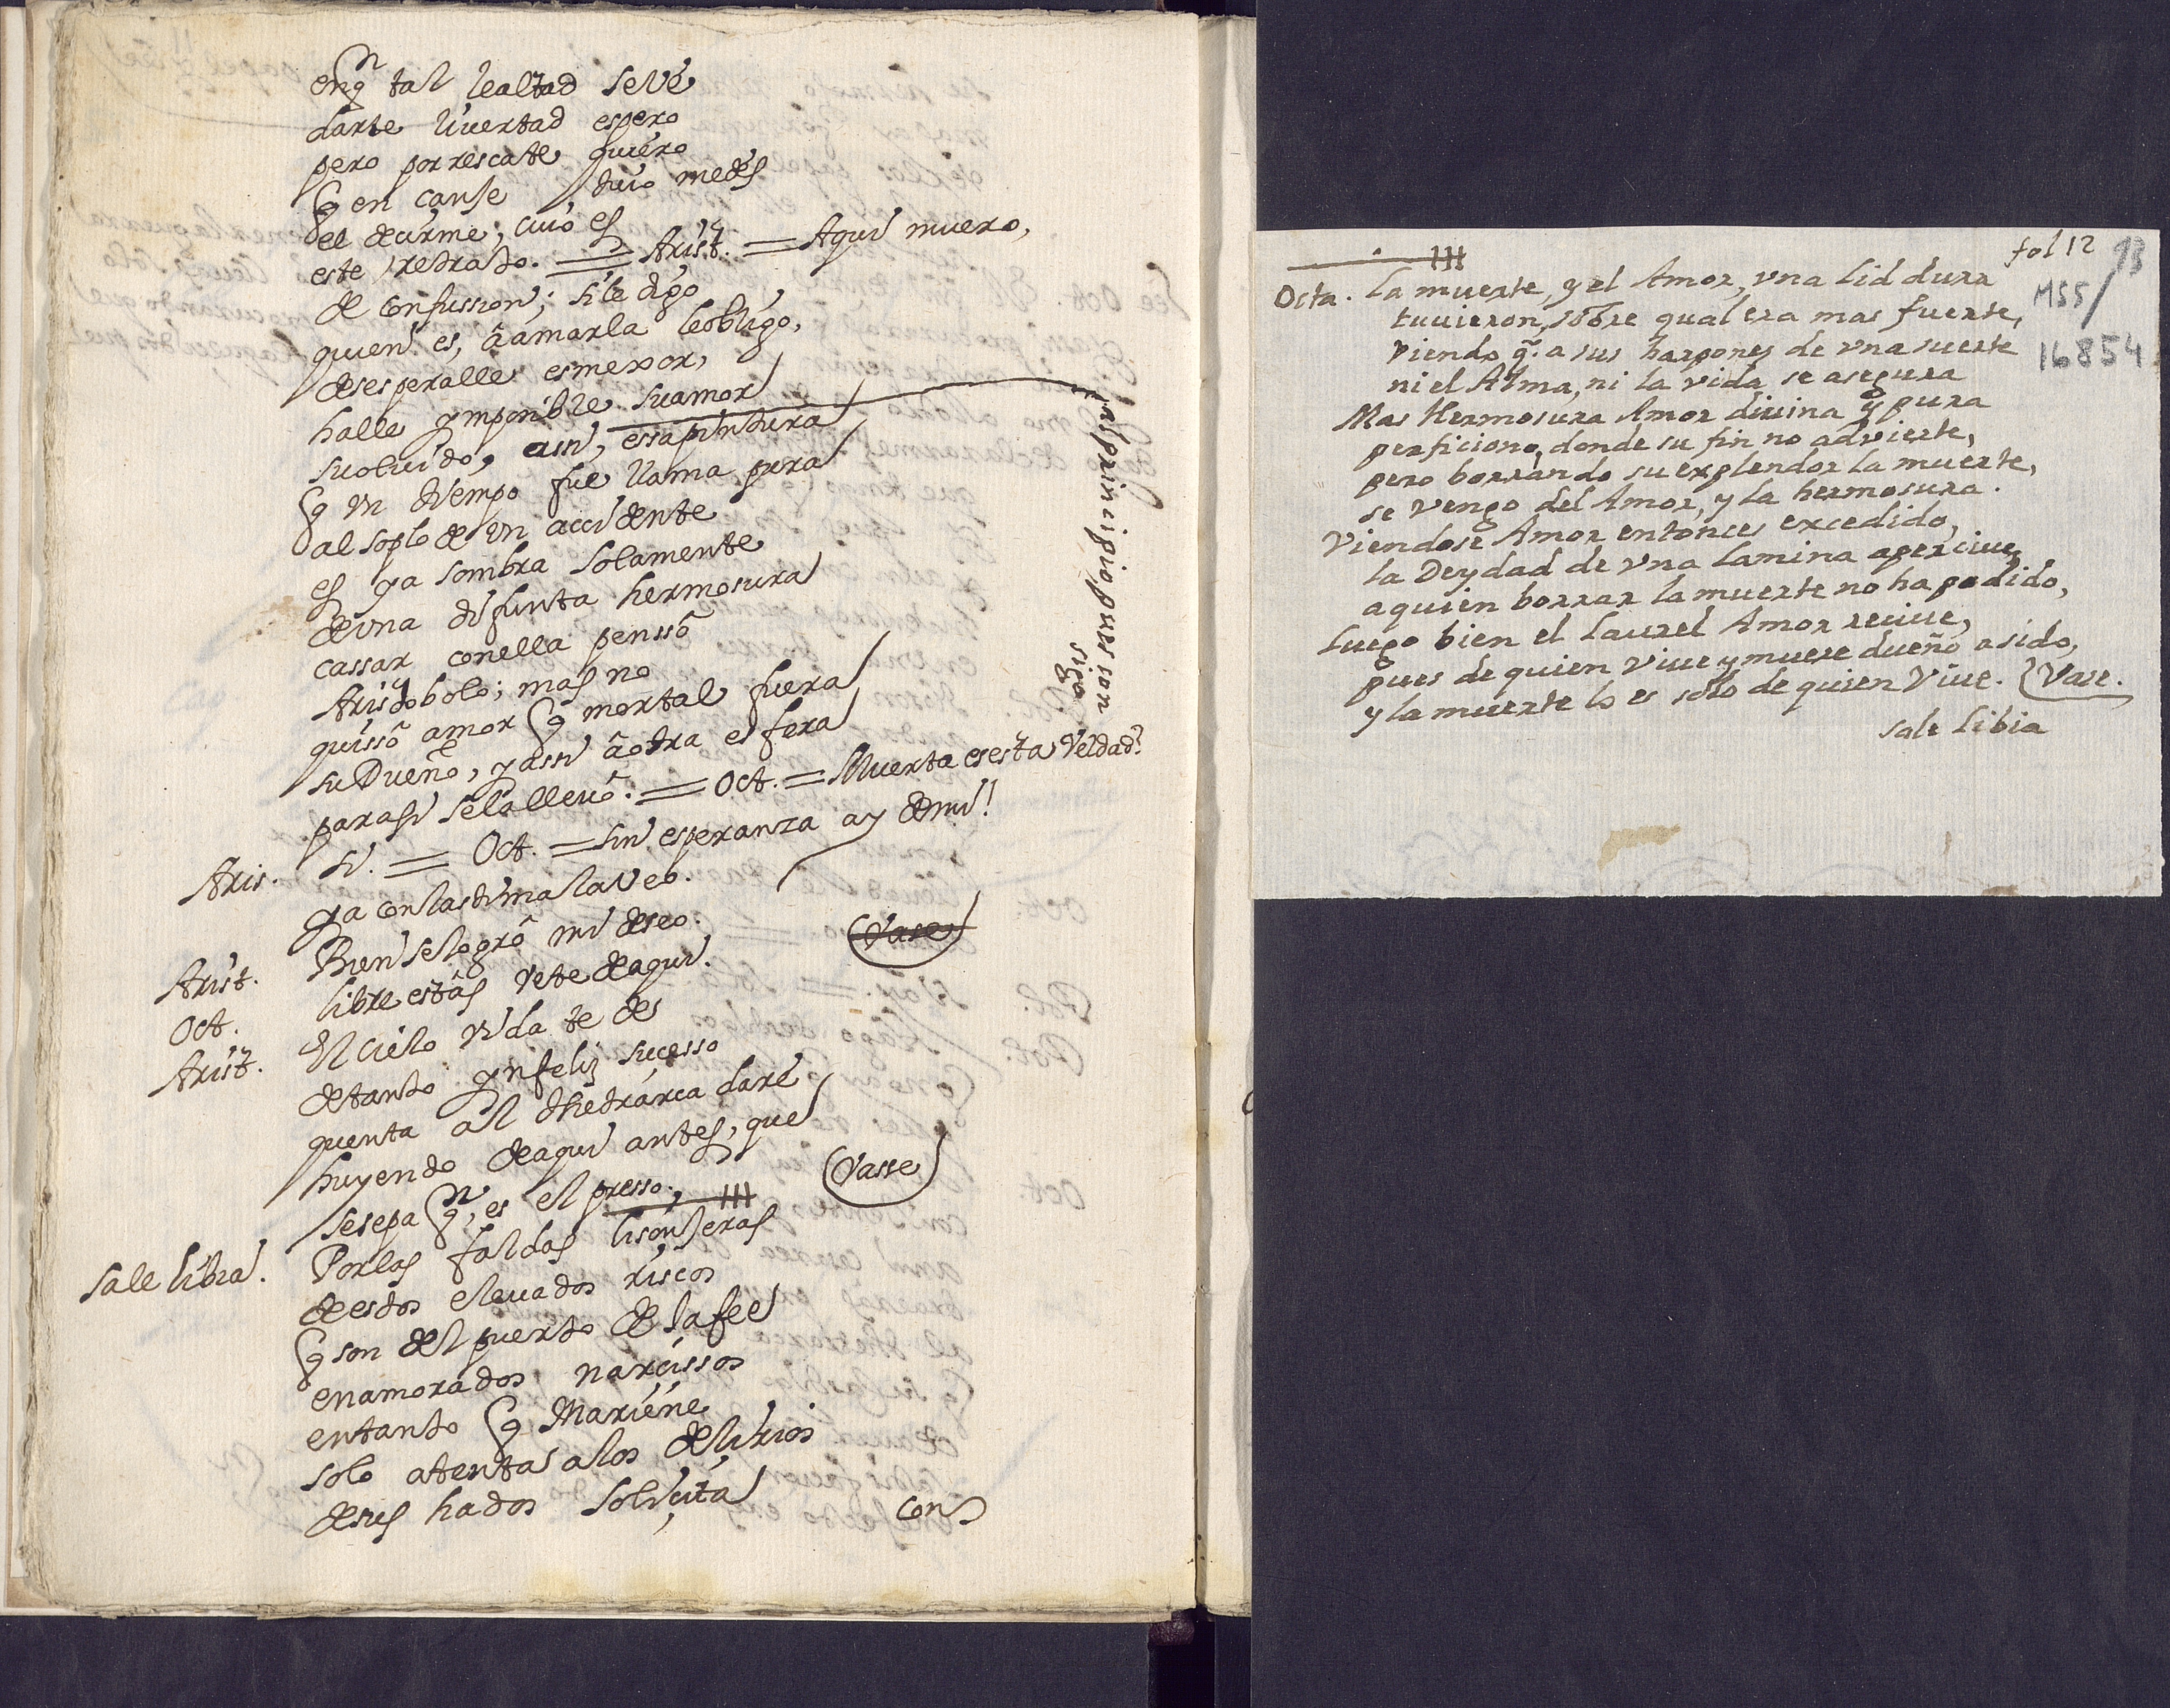 en qn tal lealtad se ve
darte livertad espero
pero por rescate quiero
q en canje suio me des
el decirme, cuio es
este retrato. = Arist. = Aqui muero,
de confussion; si le digo
quien es, â amarla le obligo,
desesperalle es mexor,
halle ymposible su amor
su oluido, assi, essa pintura
q un tiempo fue llama pura
al soplo de un accidente
es ya sombra solamente
de una difunta hermosura
cassar con ella penssô
Aristobolo; mas no
quissô amor q mortal fuera
su Dueño, y assi â otra esfera
para si se la lleuô. = Oct. = Muerta es esta Veldad?
Aris. Si. = Oct. = Sin esperanza ay de mi!
ya con lastima la veo.
Arist. Bien se logrô mi deseo.
Oct. libre estâs vete de aqui. Vase
Arist. El cielo vida te de
de tanto ynfeliz sucesso
quenta al thetrarca daré
huyendo de aqui antes, que
se sepa qn, es el presso. Vasse
Sale libia. Por las faldas lisonjeras
de estos eleuados riscos
q son del puerto de Jafee
enamorados narcissos
entanto q Mariene
solo atenta a los delirios
de sus hados solicita
con
al principio pues son
sigo
fol 12
13
MSS/
16854
Octa. La muerte, y el Amor, vna lid dura
tuuieron, sobre qual era mas fuerte,
viendo q. a sus harpones de vna suerte
ni el Alma, ni la vida se asegura
Mas Hermosura Amor diuina y pura
perficiono, donde su fin no advierte,
pero borrando su explendor la muerte,
se vengo del Amor, y la hermosura.
Viendose Amor entonces excedido,
la Deydad de vna lamina aperciue,
a quien borrar la muerte no ha podido,
luego bien el laurel Amor reciue,
pues de quien viue y muere dueño a sido,
y la muerte lo es solo de quien Viue. Vase.
sale libia